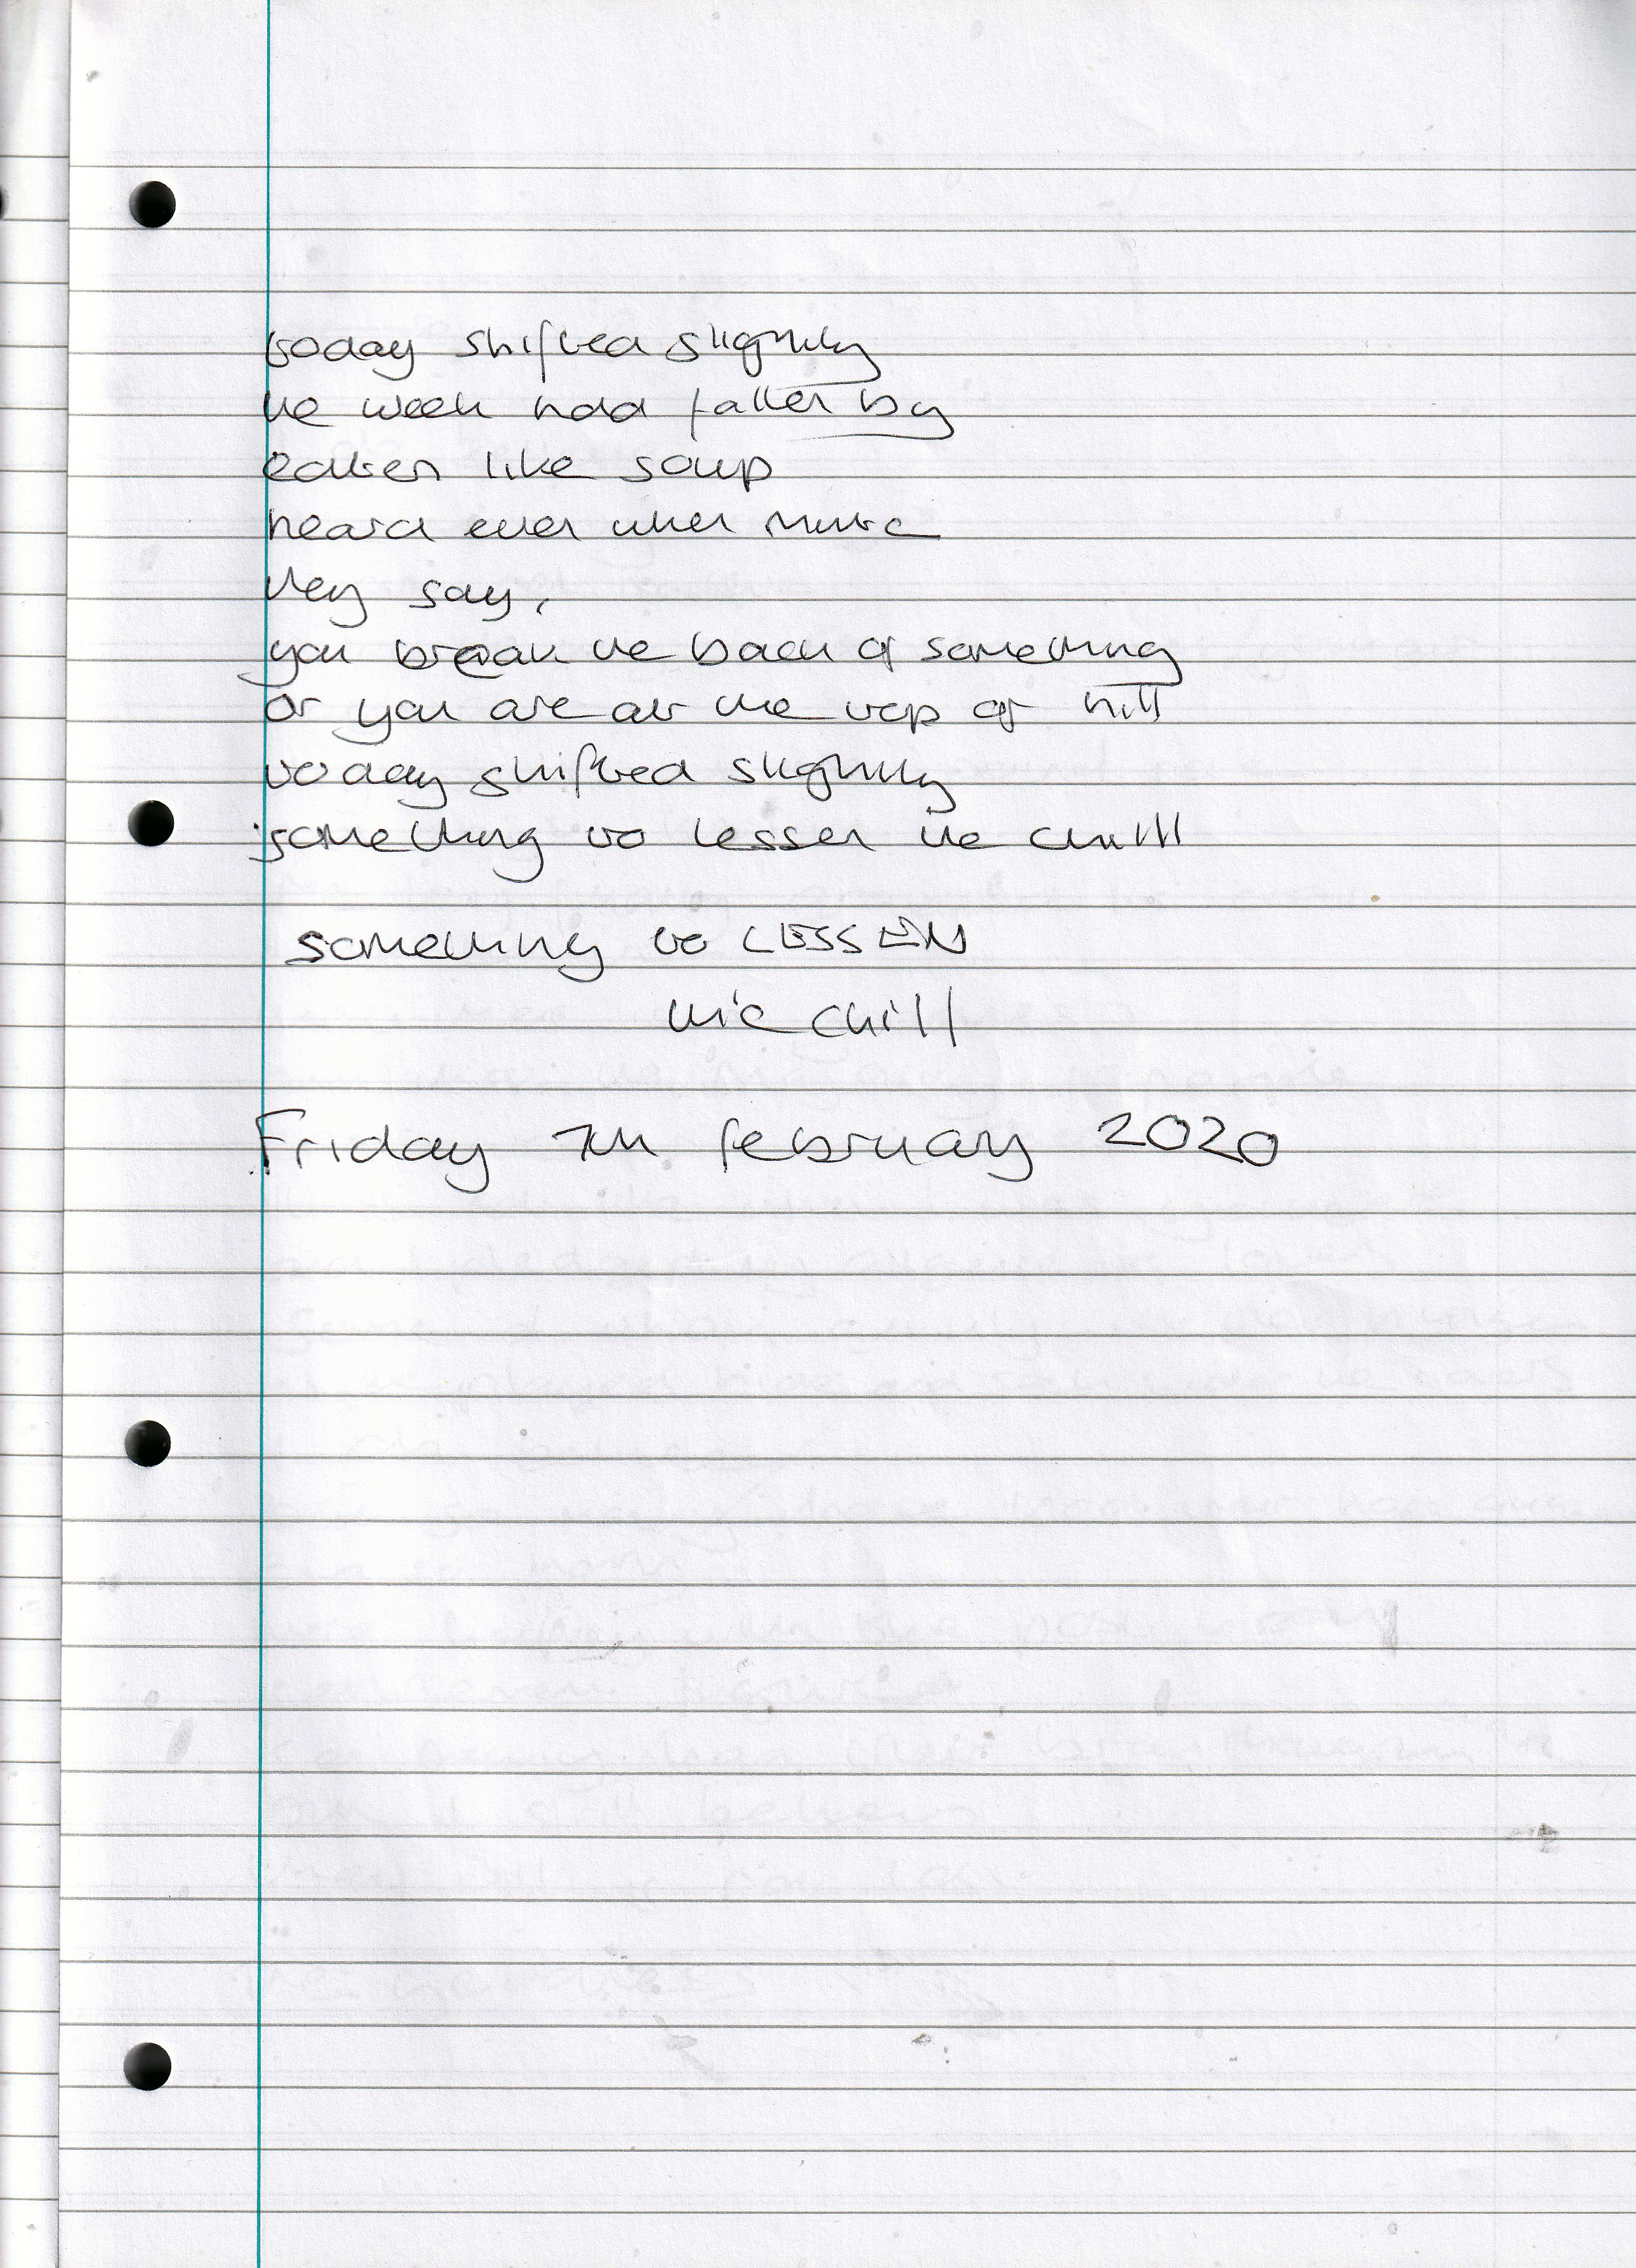 today shifted slightly
the week had fallen by
eaten like soup
heard even when mute
they say,
you break the back of something
or you are at the top of hill
today shifted slightly
something to lessen the chill
something to LESSEN
the chill
Friday 7th february 2020